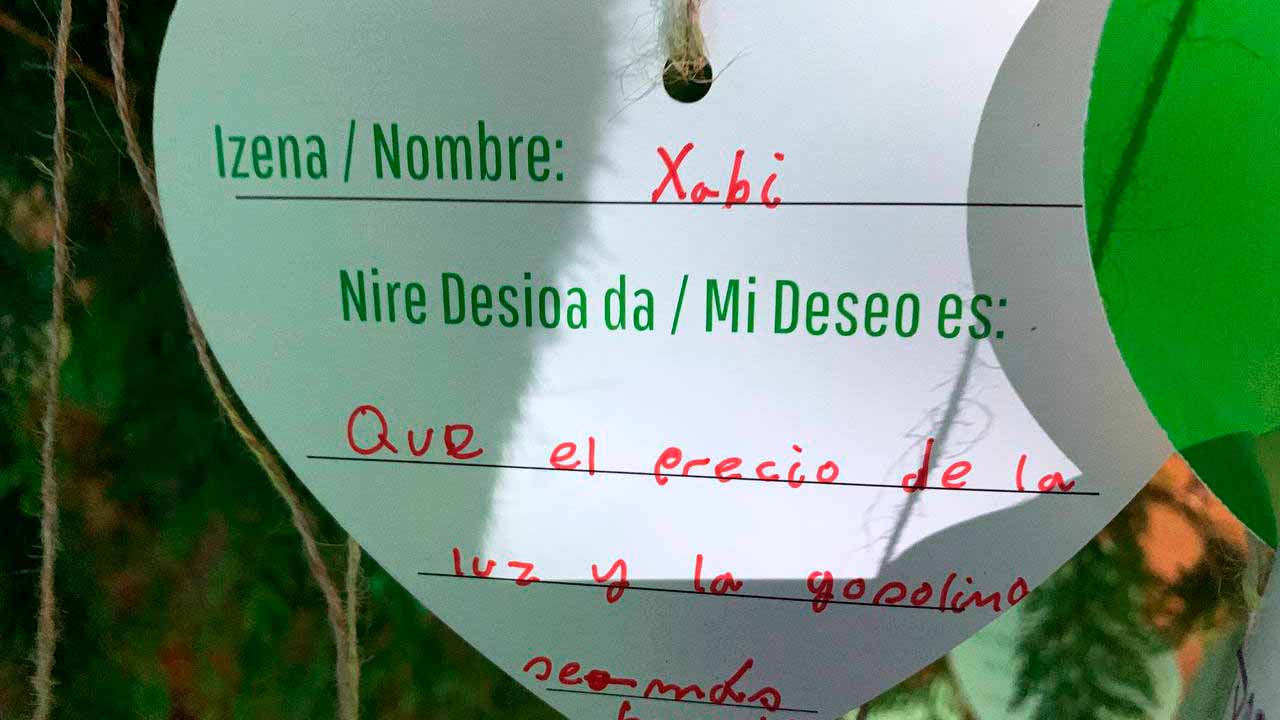 Izena / Nombre: Xabi
Nire Desioa da / Mi Deseo es:
Que el precio de la
luz y la gasolina
sea más